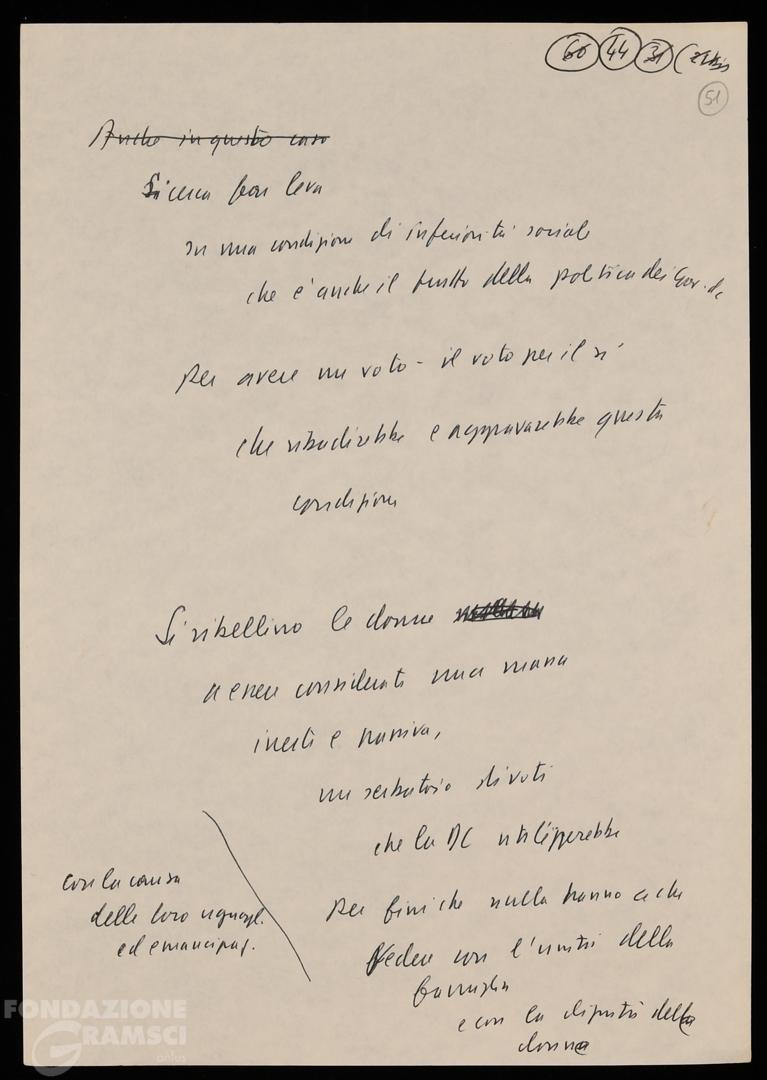 60 44 31
51
Anche in questo caso
Si cerca far leva
su una condizione di inferiorità sociale
che è anche il frutto della politica dei Gov. dc
Per avere un voto - il voto per il sì
che ribadirebbe e aggraverebbe questa
condizione
Si ribellino le donne
a essere considerate una massa
inerte e passiva,
un serbatoio di voti
che la DC utilizzerebbe
per fini che nulla hanno a che
vedere con l'unità della
famiglia
e con la dignità della
donna
con la causa
della loro uguagl.
ed emancipaz.
FONDAZIONE
GRAMSCI
onlus